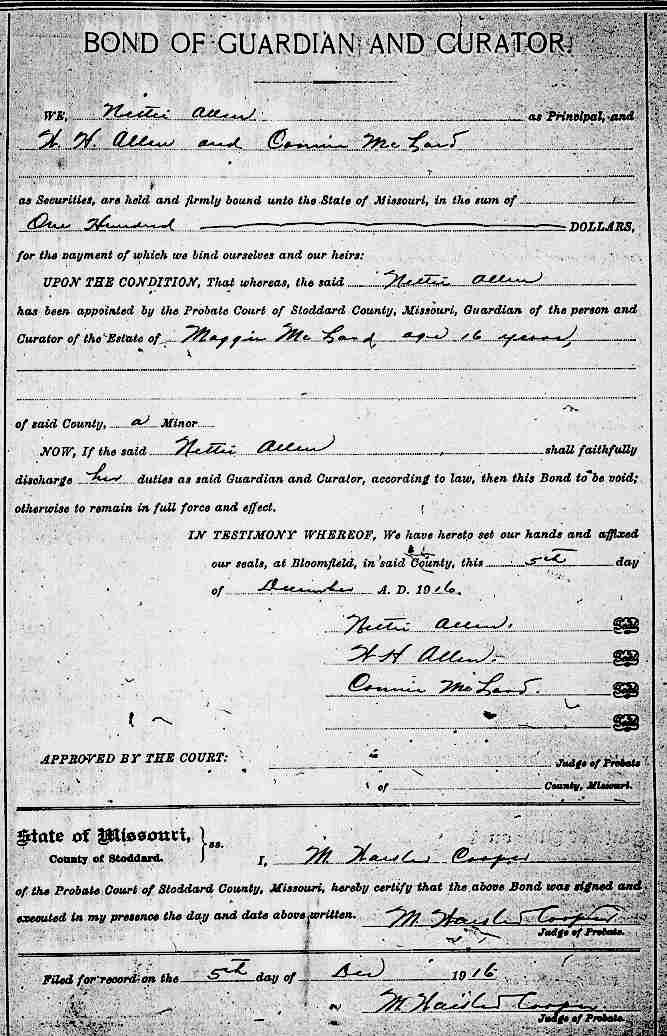 BOND OF GUARDIAN AND CURATOR.
WE, Nettie Allen as Principal, and
W. H. Allen and Connie McLard
as Securities, are held and firmly bound unto the State of Missouri, in the sum of
One Hundred DOLLARS,
for the payment of which we bind ourselves and our heirs:
UPON THE CONDITION, That whereas, the said Nettie Allen
has been appointed by the Probate Court of Stoddard County, Missouri, Guardian of the person and
Curator of the Estate of Maggie McLard age 16 years,
of said County, a Minor
NOW, If the said Nettie Allen shall faithfully
discharge her duties as said Guardian and Curator, according to law, then this Bond to be void;
otherwise to remain in full force and effect.
IN TESTIMONY WHEREOF, We have hereto set our hands and affixed
our seals, at Bloomfield, in said County, this 5th day
of December A. D. 1916.
Nettie Allen. Seal
W H Allen. Seal
Connie McLard. Seal
Seal
APPROVED BY THE COURT: Judge of Probate
of County, Missouri.
State of Missouri,
County of Stoddard. } ss.
I, M Haisler Cooper
of the Probate Court of Stoddard County, Missouri, hereby certify that the above Bond was signed and
executed in my presence the day and date above written. M. Haisler Cooper
Judge of Probate.
Filed for record on the 5th day of Dec 1916
M Haisler Cooper
Judge of Probate.